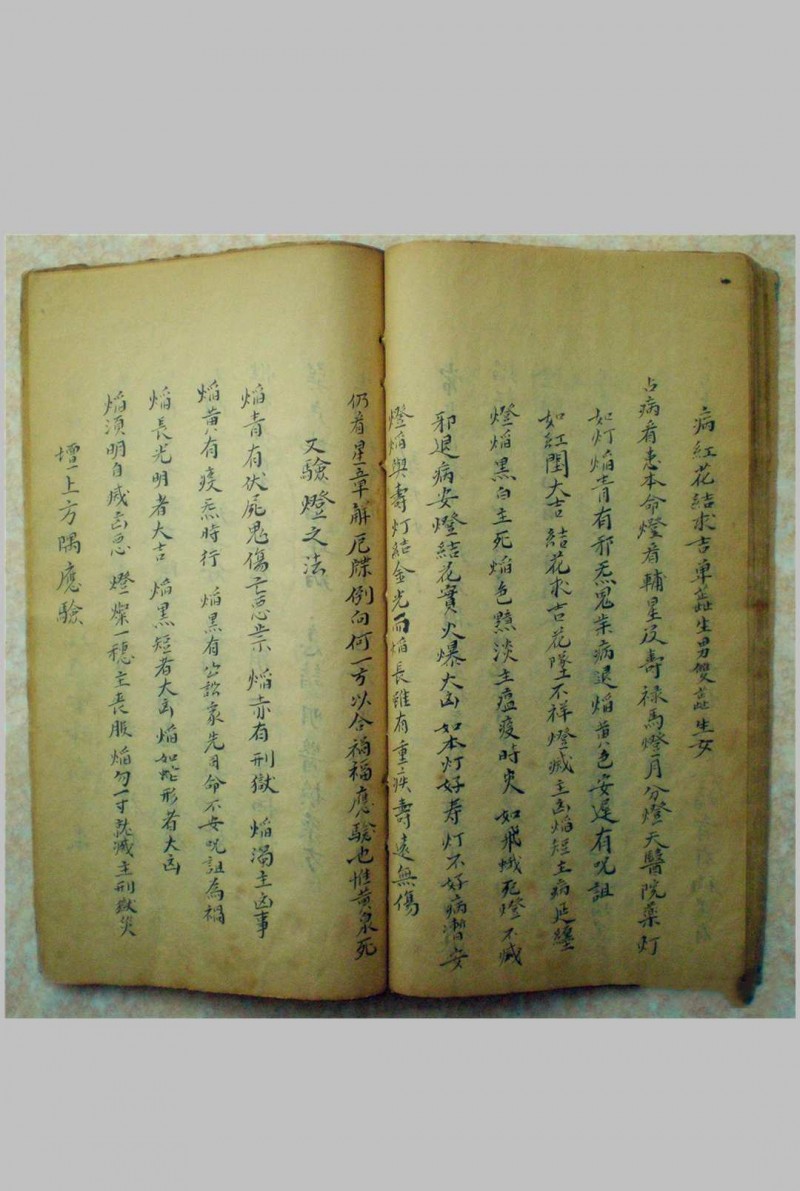 病紅花結求吉單蕋生男雙蕋生女
占病看患本命燈看輔星及壽祿馬燈月分燈天醫院藥灯
如灯焰青有邪炁鬼祟病退焰黄色安遲有咒詛
如紅閏大吉結花求吉花墜不祥燈滅主凶焰短主病延纏
燈焰黑白主死焰色黯淡主瘟疫時灾如飛蛾死燈不滅
邪退病安燈結花實火爆大凶如本灯好寿灯不好病潛安
燈焰與壽灯結金光而焰長雖有重疾壽遠無傷
仍看星辛解厄牒倒向何一方以合禍福應驗也惟黄泉死
又驗燈之法
焰青有伏屍鬼傷亡為祟 焰赤有刑獄 焰濁主凶事
焰黄有疫炁時行 焰黑有公訟家先司命不安咒詛為禍
焰長光明者大吉 焰黑短者大凶焰如蛇形者大凶
焰須明自滅凶惡 燈燦一穗主喪服焰勾一寸就滅主刑獄灾
壇上方隅應驗